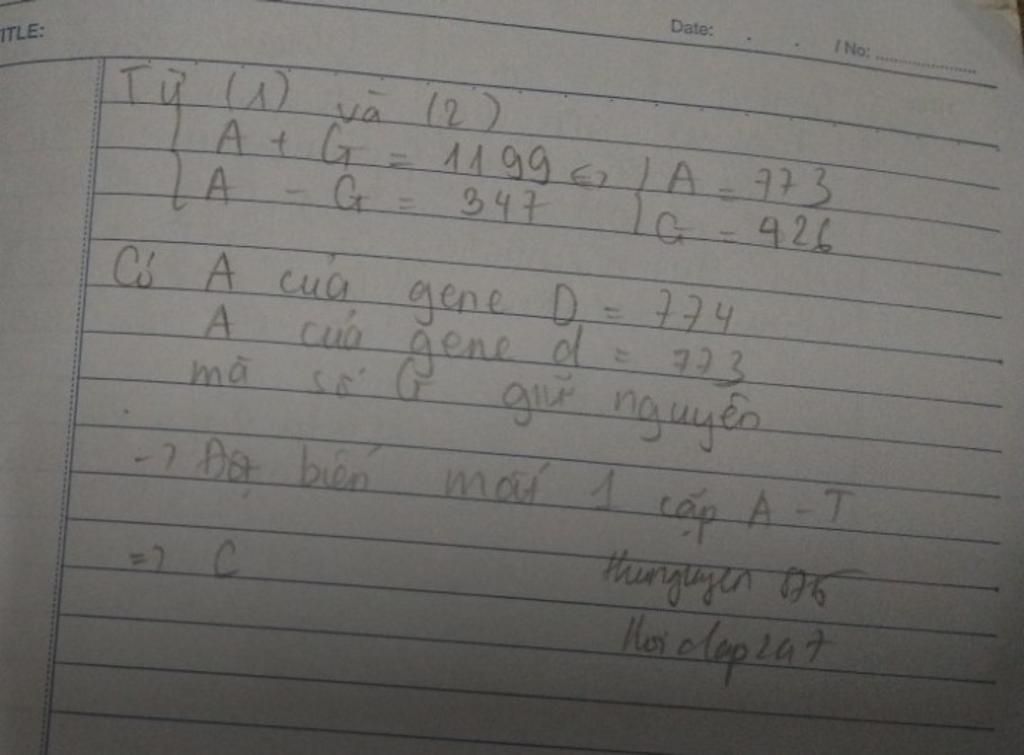 TITLE:
Date: . . / No: ....................
Từ (1) và (2)
{ A + G = 1199 <=> { A = 773
{ A - G = 347 { G = 426
Có A của gene D = 774
A của gene d = 773
mà số G giữ nguyên
-> Đột biến mất 1 cặp A - T
=> C
thunguyen
Hoidap247